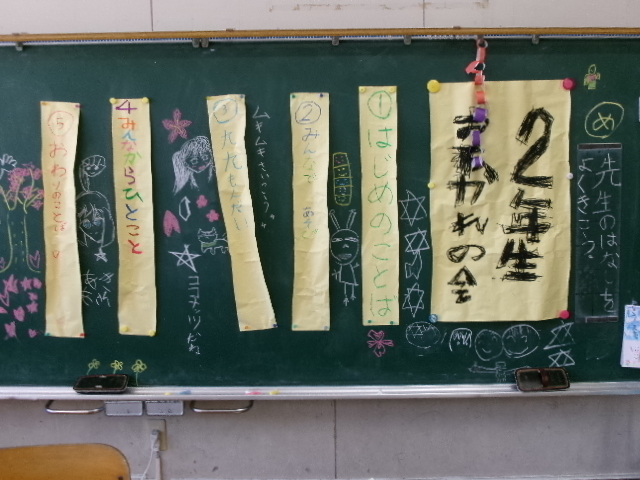 め
先生のはなしを
よくきこう。
2年生
おわかれの会
①はじめのことば
②みんなであそ
ムキムキさいっこうー
③九九もんだい
ココナッツだね
4みんなからひとこと
⑤おわりのことば。